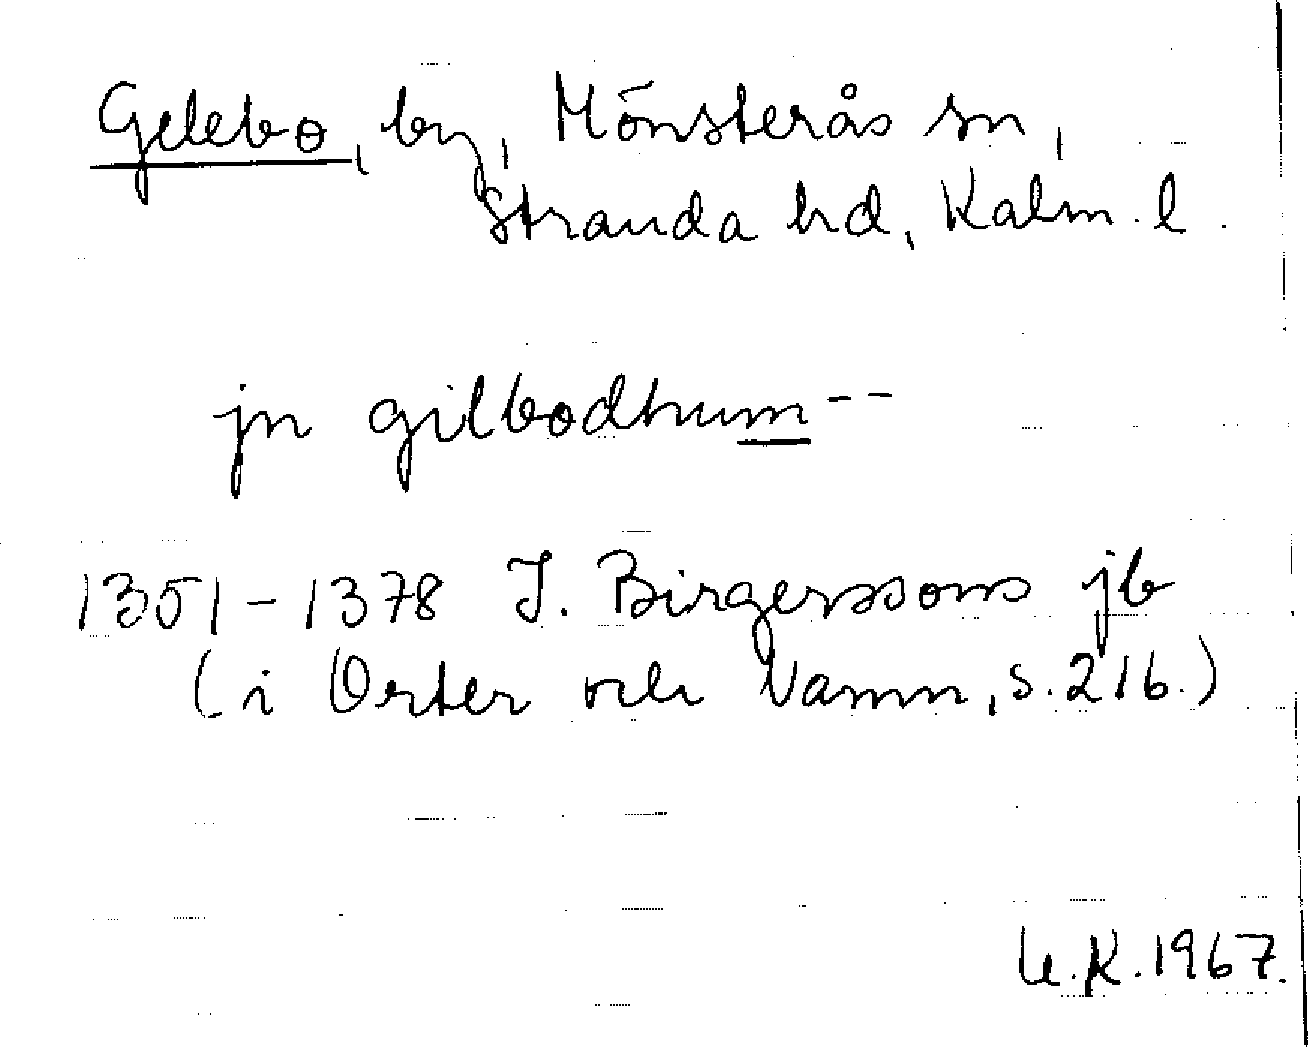 Gelebo, by, Mönsterås sn,
Stranda hd, Kalm. l.
jn gilbodhum --
1351-1378 J. Birgerssons jb
(i Orter och Namn, s. 216.)
U.K. 1967.